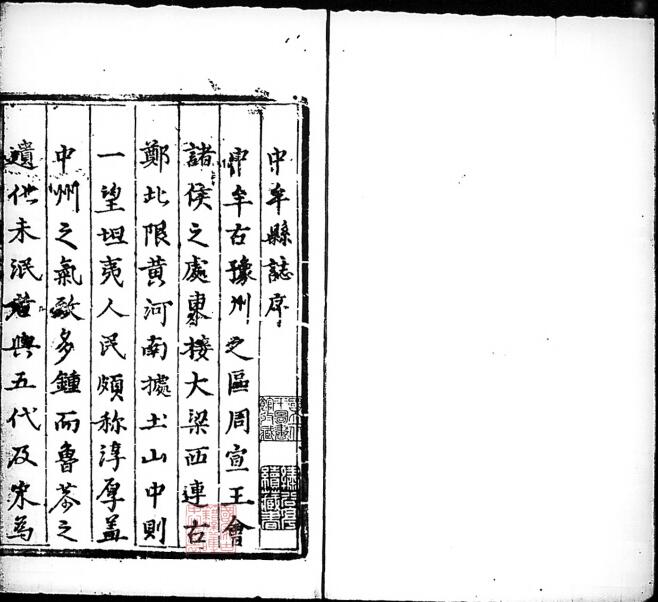 中牟縣誌序
中牟古豫州之區周宣王會
諸侯之處東接大梁西連古
鄭北限黄河南據土山中則
一望坦夷人民頗称淳厚盖
中州之氣啟多鍾而魯恭之
遺化未泯歟與五代及宋為